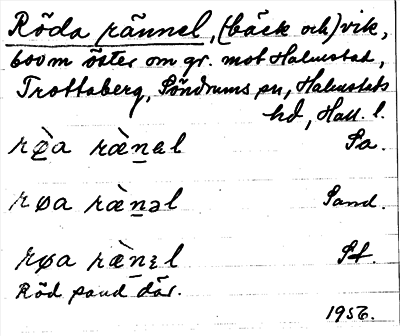 Röda rännel, (bäck och) vik,
600 m öster om gr. mot Halmstad,
Trottaberg, Söndrums sn, Halmstads
hd, Hall. l.
rø̀a ræ̀nel Sa.
røa ræ̀nəl Sand.
røa ræ̀nɛl St.
Röd sand där.
1956.